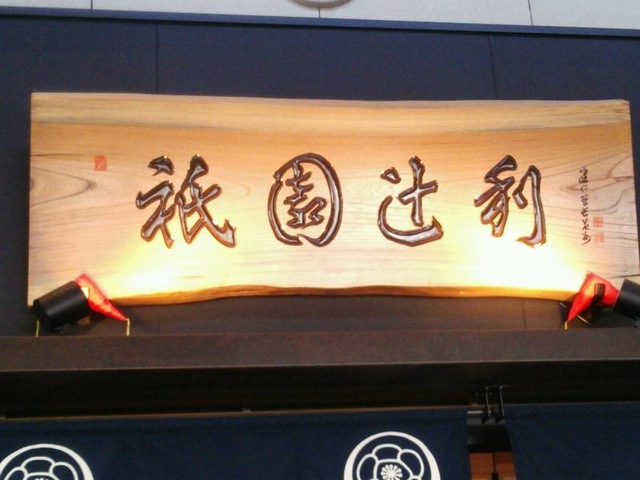 祇園辻利